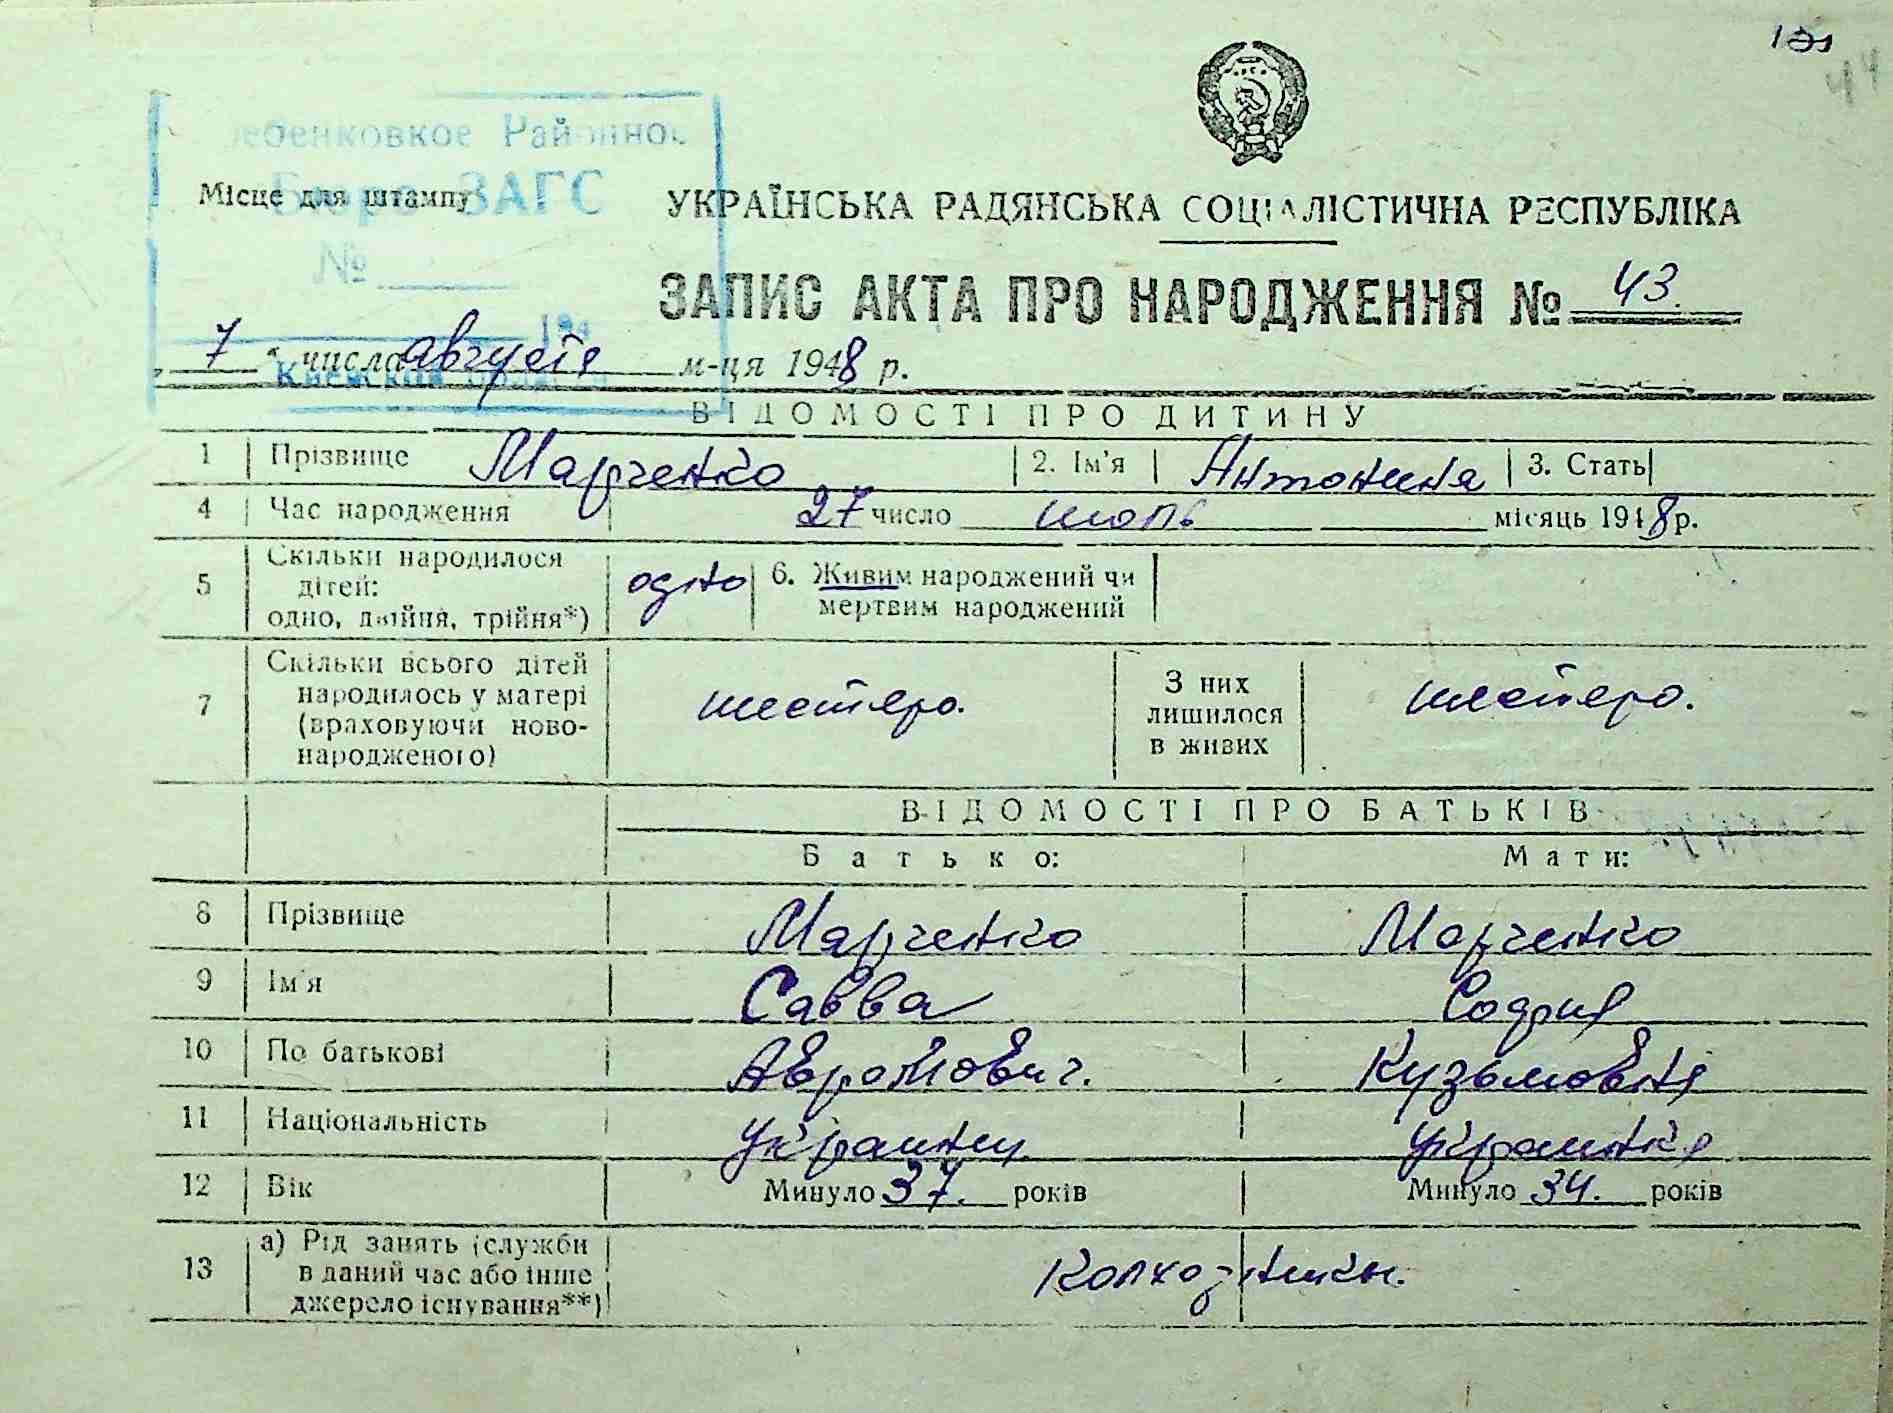 44
Районное
Бюро ЗАГС
№
194
Киевской области
Місце для штампу
УКРАЇНСЬКА РАДЯНСЬКА СОЦІАЛІСТИЧНА РЕСПУБЛІКА
ЗАПИС АКТА ПРО НАРОДЖЕННЯ № 43.
„ 7 “ числа августа м-ця 1948 р.
ВІДОМОСТІ ПРО ДИТИНУ
1 Прізвище Марченко 2. Ім'я Антонина 3. Стать
4 Час народження 27 число июль місяць 1948 р.
5 Скільки народилося дітей: одно, двійня, трійня*) одно 6. Живим народжений чи мертвим народжений
7 Скільки всього дітей народилось у матері (враховуючи ново-народженого) шестеро. З них лишилося в живих шестеро.
ВІДОМОСТІ ПРО БАТЬКІВ
Батько: Мати:
8 Прізвище Марченко Марченко
9 Ім'я Савва София
10 По батькові Авромович. Кузьмовна
11 Національність украинец украинка
12 Вік Минуло 37. років Минуло 34. років
13 а) Рід занять (служби в даний час або інше джерело існування**) Колхозники.